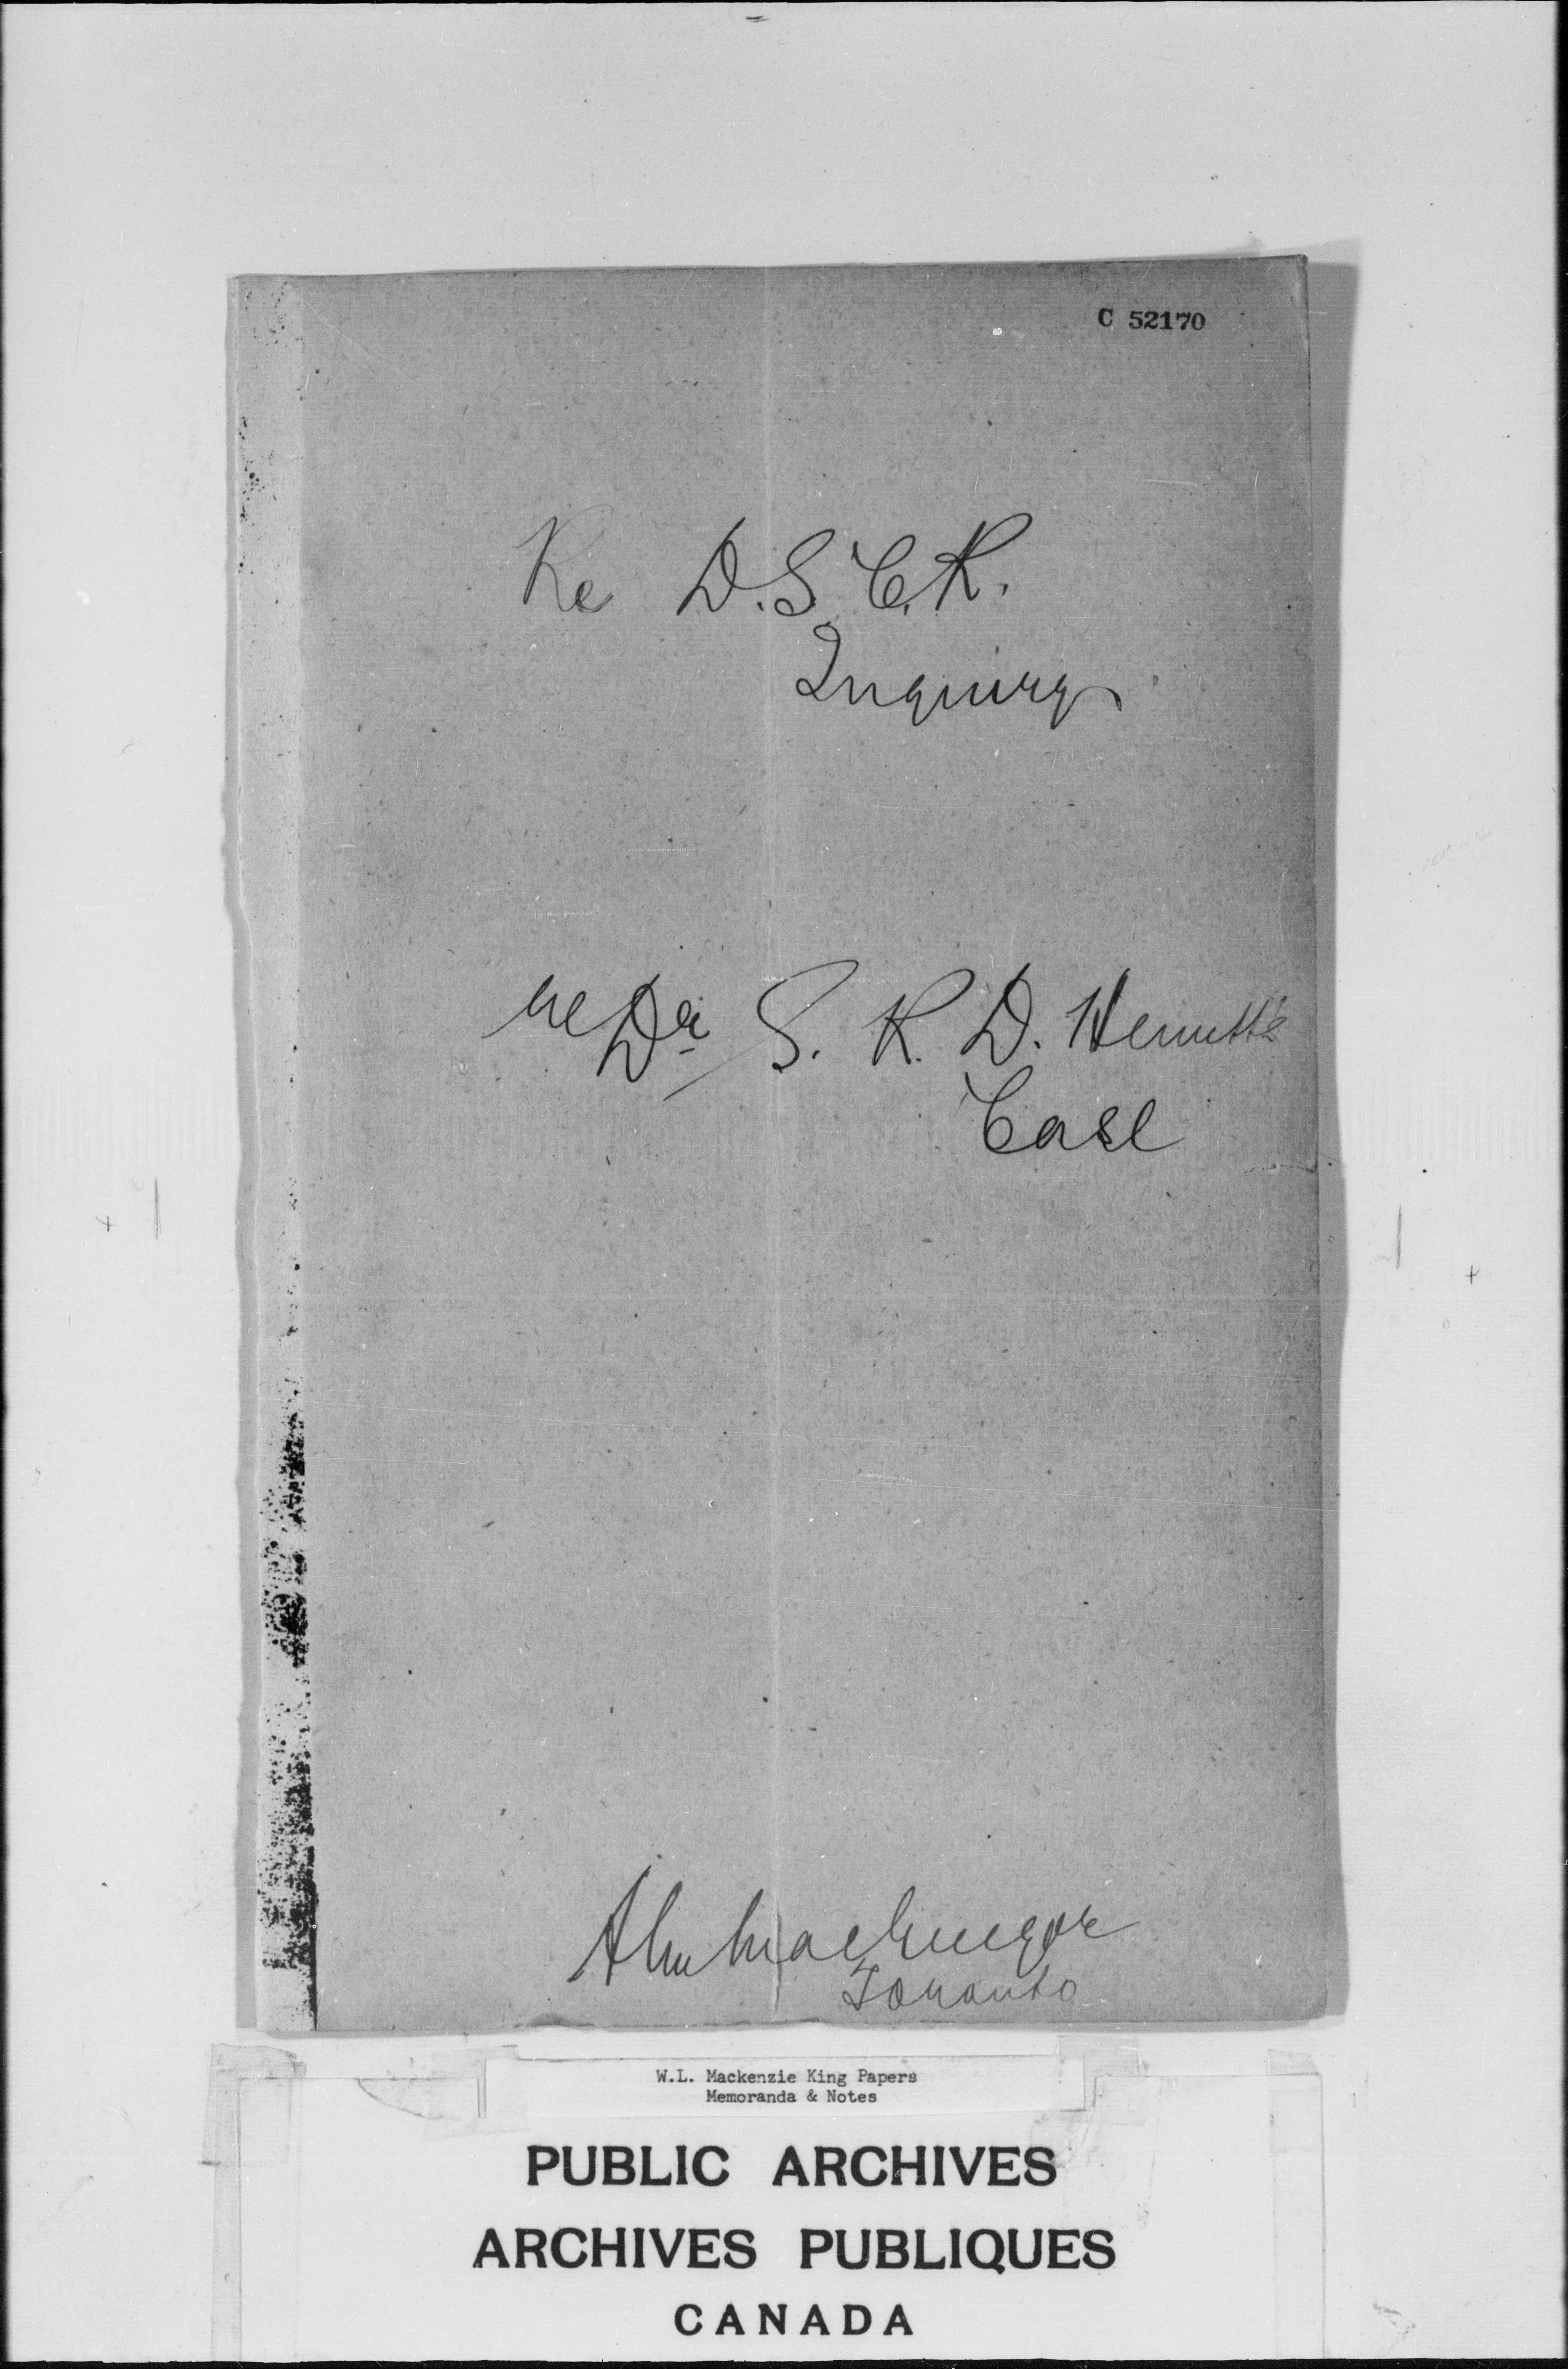 C 52170
Re D.S.C.R.
Inquiry
re Dr S. R. D. Hewitt's
Case
MacGregor
Toronto
W.L. Mackenzie King Papers
Memoranda & Notes
PUBLIC ARCHIVES
ARCHIVES PUBLIQUES
CANADA